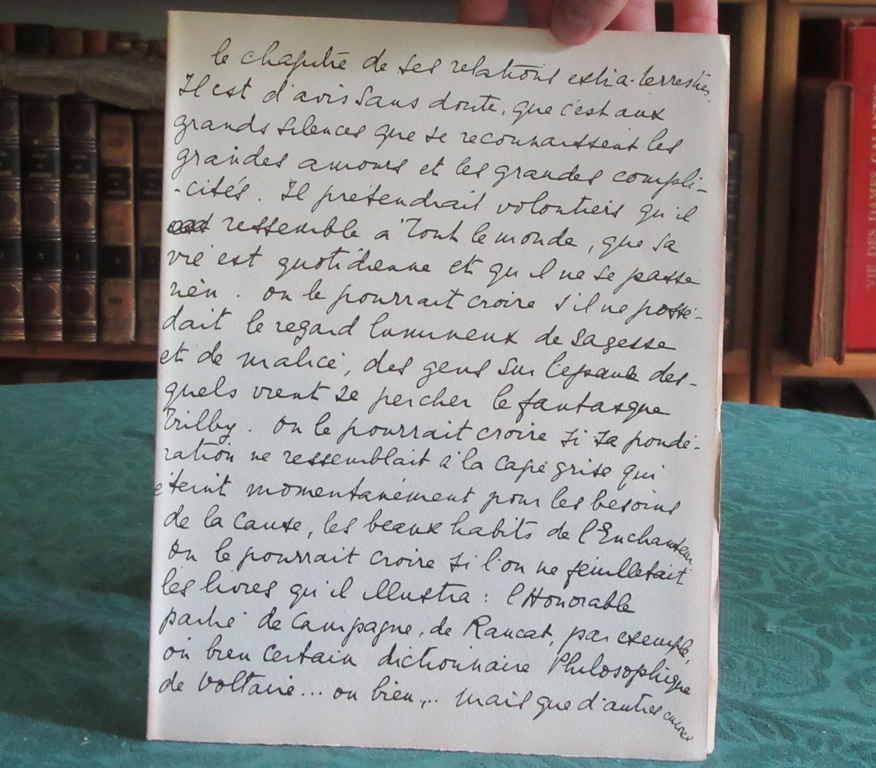 le chapitre de ses relations extra-terrestres.
Il est d'avis sans doute, que c'est aux
grands silences que se reconnaissent les
grandes amours et les grandes compli-
-cités. Il prétendrait volontiers qu'il
ressemble à Tout le monde, que sa
vie est quotidienne et qu'il ne se passe
rien. On le pourrait croire s'il ne possé-
dait le regard lumineux de sagesse
et de malice, des gens sur l'épaule des-
quels vient se percher le fantasque
Trilby. On le pourrait croire si sa pondé-
ration ne ressemblait à la cape grise qui
éteint momentanément pour les besoins
de la cause, les beaux habits de l'Enchanteur
On le pourrait croire si l'on ne feuilletait
les livres qu'il illustra : l'Honorable
partie de Campagne, de Raucat, par exemple,
ou bien certain dictionnaire Philosophique
de Voltaire... ou bien... mais que d'autres encore
VIE DES DAMES GALANTES